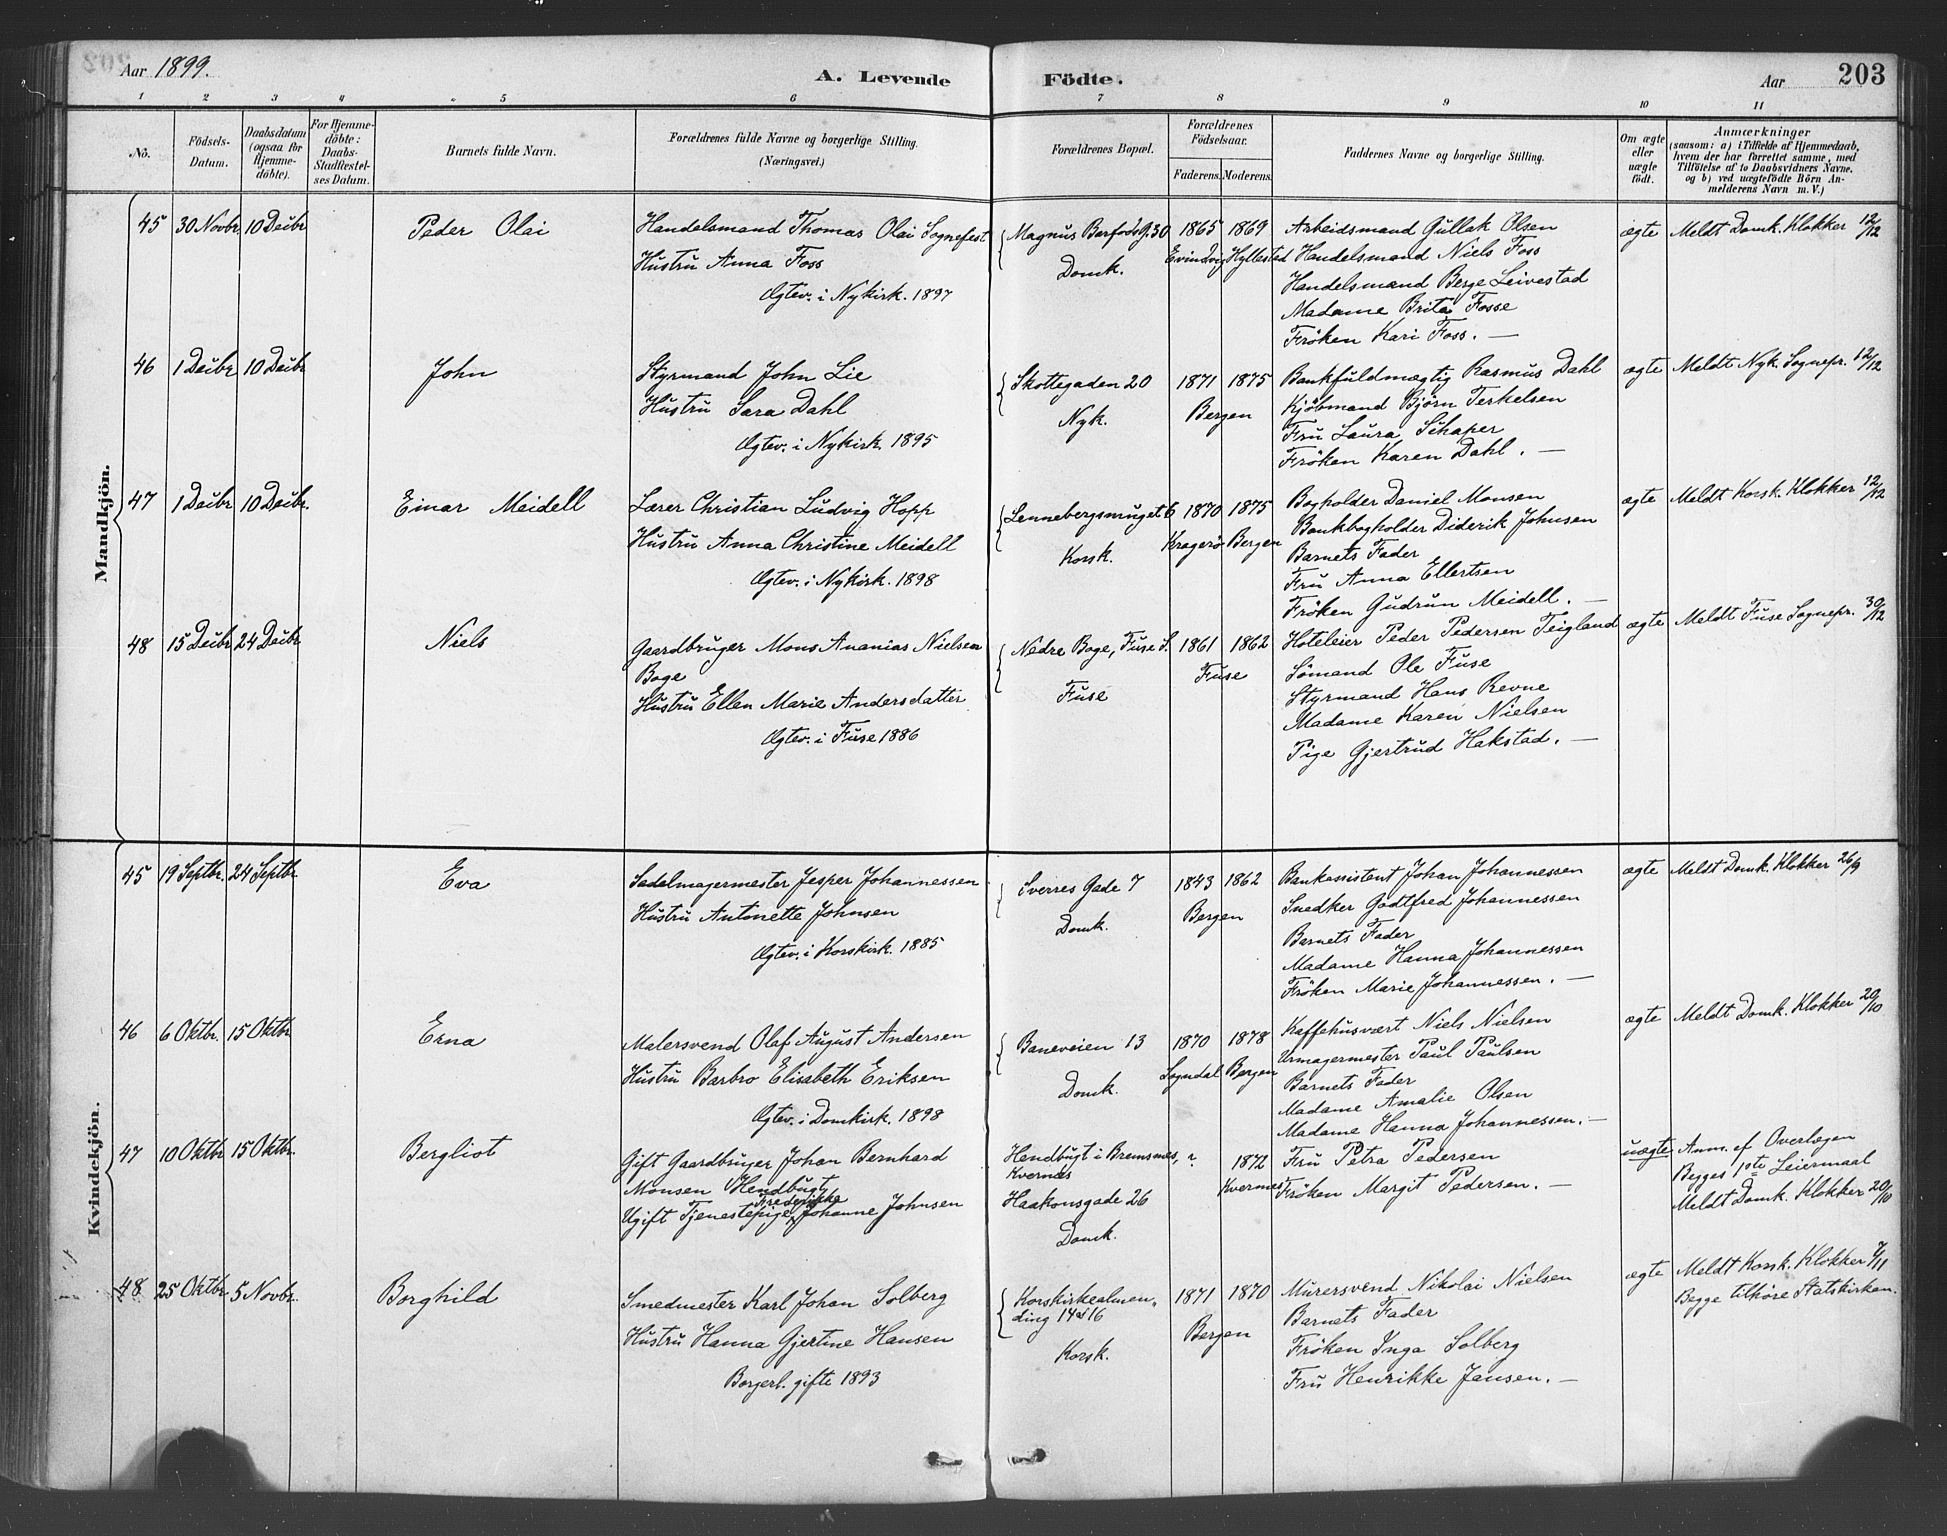 Aar 1899.
A. Levende Födte.
Aar 203
1 2 3 4 5 6 7 8 9 10 11
No.
Födsels-
Datum.
Daabsdatum
(ogsaa for
Hjemme-
döbte).
For Hjemme-
döbte:
Daabs-
Stadfæstel-
ses Datum.
Barnets fulde Navn.
Forældrenes fulde Navne og borgerlige Stilling.
(Næringsvei.)
Forældrenes Bopæl.
Forældrenes
Födselsaar.
Faderens.
Moderens.
Faddernes Navne og borgerlige Stilling.
Om ægte
eller
uægte
födt.
Anmærkninger
(saasom: a) i Tilfælde af Hjemmedaab,
hvem der har forrettet samme, med
Tilföielse af to Daabsvidners Navne,
og b) ved uægtefödte Börn An-
melderens Navn m. V.)
Mandkjön.
45 30 Novbr 10 Decbr Peder Olai
Handelsmand Thomas Olai Sognefest
Hustru Anna Foss
Ægtev. i Nykirk. 1897
Magnus Barfods G. 30
Domk.
1865 1869
Evindvig Hyllestad
Arbeidsmand Gullak Olsen
Handelsmand Niels Foss
Handelsmand Berge Leivestad
Madame Brita Fosse
Fröken Kari Foss. —
ægte Meldt Domk. Klokker 12/12
46 1 Decbr 10 Decbr John
Styrmand John Lie
Hustru Sara Dahl
Ægtev. i Nykirk. 1895
Skottegaden 20
Nyk.
1871 1875
Bergen
Bankfuldmægtig Rasmus Dahl
Kjöbmand Björn Terkelsen
Fru Laura Schaper
Fröken Karen Dahl. —
ægte Meldt Nyk. Sognepr. 12/12
47 1 Decbr 10 Decbr. Einar Meidell
Lærer Christian Ludvig Hopp
Hustru Anna Christine Meidell
Ægtev. i Nykirk. 1898
Lennebergsmuget 6
Korsk.
1870 1875
Kragerö Bergen
Bogholder Daniel Monsen
Bankbogholder Diderik Johnsen
Barnets Fader
Fru Anna Ellertsen
Fröken Gudrun Meidell. —
ægte Meldt Korsk. Klokker 12/12
48 15 Decbr 24 Decbr Niels
Gaardbruger Mons Ananias Nielsen
Boge
Hustru Ellen Marie Andersdatter
Ægtev. i Fuse 1886
Nedre Boge, Fuse S.
Fuse
1861 1862
Fuse
Hoteleier Peder Pedersen Teigland
Sömand Ole Fuse
Styrmand Hans Revne
Madame Karen Nielsen
Pige Gjertrud Hakstad. —
ægte Meldt Fuse Sognepr. 30/12
Kvindekjön.
45 19 Septbr. 24 Septbr Eva
Sadelmagermester Jesper Johannessen
Hustru Antonette Johnsen
Ægtev. i Korskirk. 1885
Sverres Gade 7
Domk.
1843 1862
Bergen
Bankassistent Johan Johannessen
Snedker Godtfred Johannessen
Barnets Fader
Madame Hanna Johannessen
Fröken Marie Johannessen. —
ægte Meldt Domk. Klokker 26/9
46 6 Oktbr. 15 Oktbr Erna
Malersvend Olaf August Andersen
Hustru Barbro Elisabeth Eriksen
Ægtev. i Domkirk. 1898
Baneveien 13
Domk.
1870 1878
Sogndal Bergen
Kaffehusvært Niels Nielsen
Urmagermester Paul Paulsen
Barnets Fader
Madame Amalie Olsen
Madame Hanna Johannessen. —
ægte Meldt Domk. Klokker 20/10
47 10 Oktbr 15 Oktbr. Bergliot
Gift Gaardbruger Johan Bernhard
Monsen Hendbugt
Frederikke
Ugift Tjenestepige Johanne Johnsen
Hendbugt i Bremsnes,
Kvernes
Haakonsgade 26
Domk.
? 1872
Kvernes
Fru Petra Pedersen
Fröken Margit Pedersen. —
uægte Anm. af Overlægen
Begges 1ste Leiermaal
Meldt Domk. Klokker 20/10
48 25 Oktbr 5 Novbr. Borghild
Smedmester Karl Johan Solberg
Hustru Hanna Gjertine Hansen
Borgerl. gifte 1893
Korskirkealmen-
ding 14 & 16
Korsk.
1871 1870
Bergen
Murersvend Nikolai Nielsen
Barnets Fader
Fröken Inga Solberg
Fru Henrikke Jansen. —
ægte Meldt Korsk. Klokker 7/11
Begge tilhöre Statskirken.